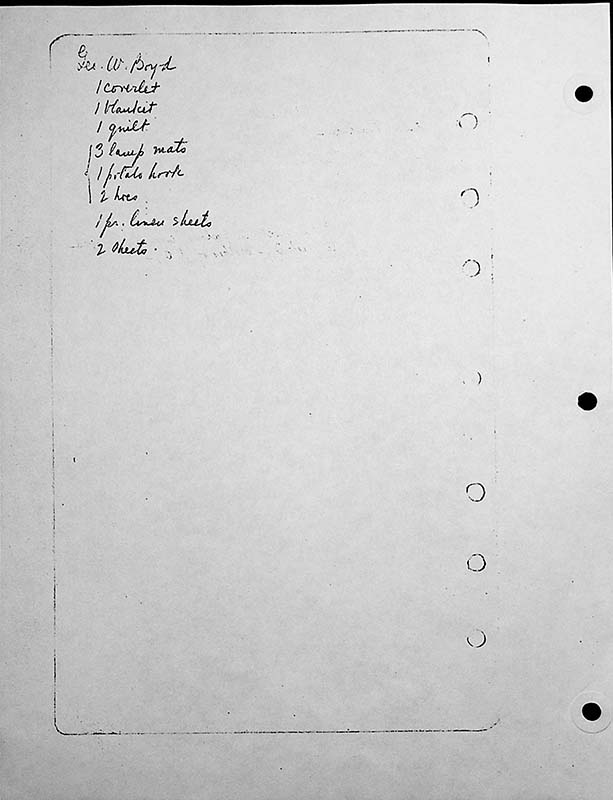 Geo. W. Boyd
1 coverlet
1 blanket
1 quilt
3 lamp mats
1 potato hook
2 hoes
1 pr. linen sheets
2 sheets.